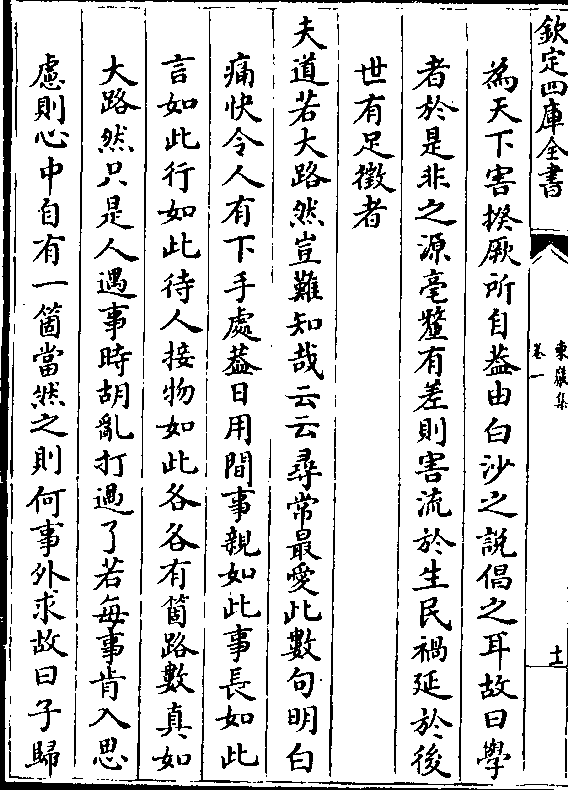 欽定四庫全書
東巖集
卷一
十一
為天下害揆厥所自葢由白沙之説倡之耳故曰學
者於是非之源毫釐有差則害流於生民禍延於後
世有足徵者
夫道若大路然豈難知哉云云尋常最愛此數句明白
痛快令人有下手處葢日用間事親如此事長如此
言如此行如此待人接物如此各各有箇路數真如
大路然只是人遇事時胡亂打過了若每事肯入思
慮則心中自有一箇當然之則何事外求故曰子歸